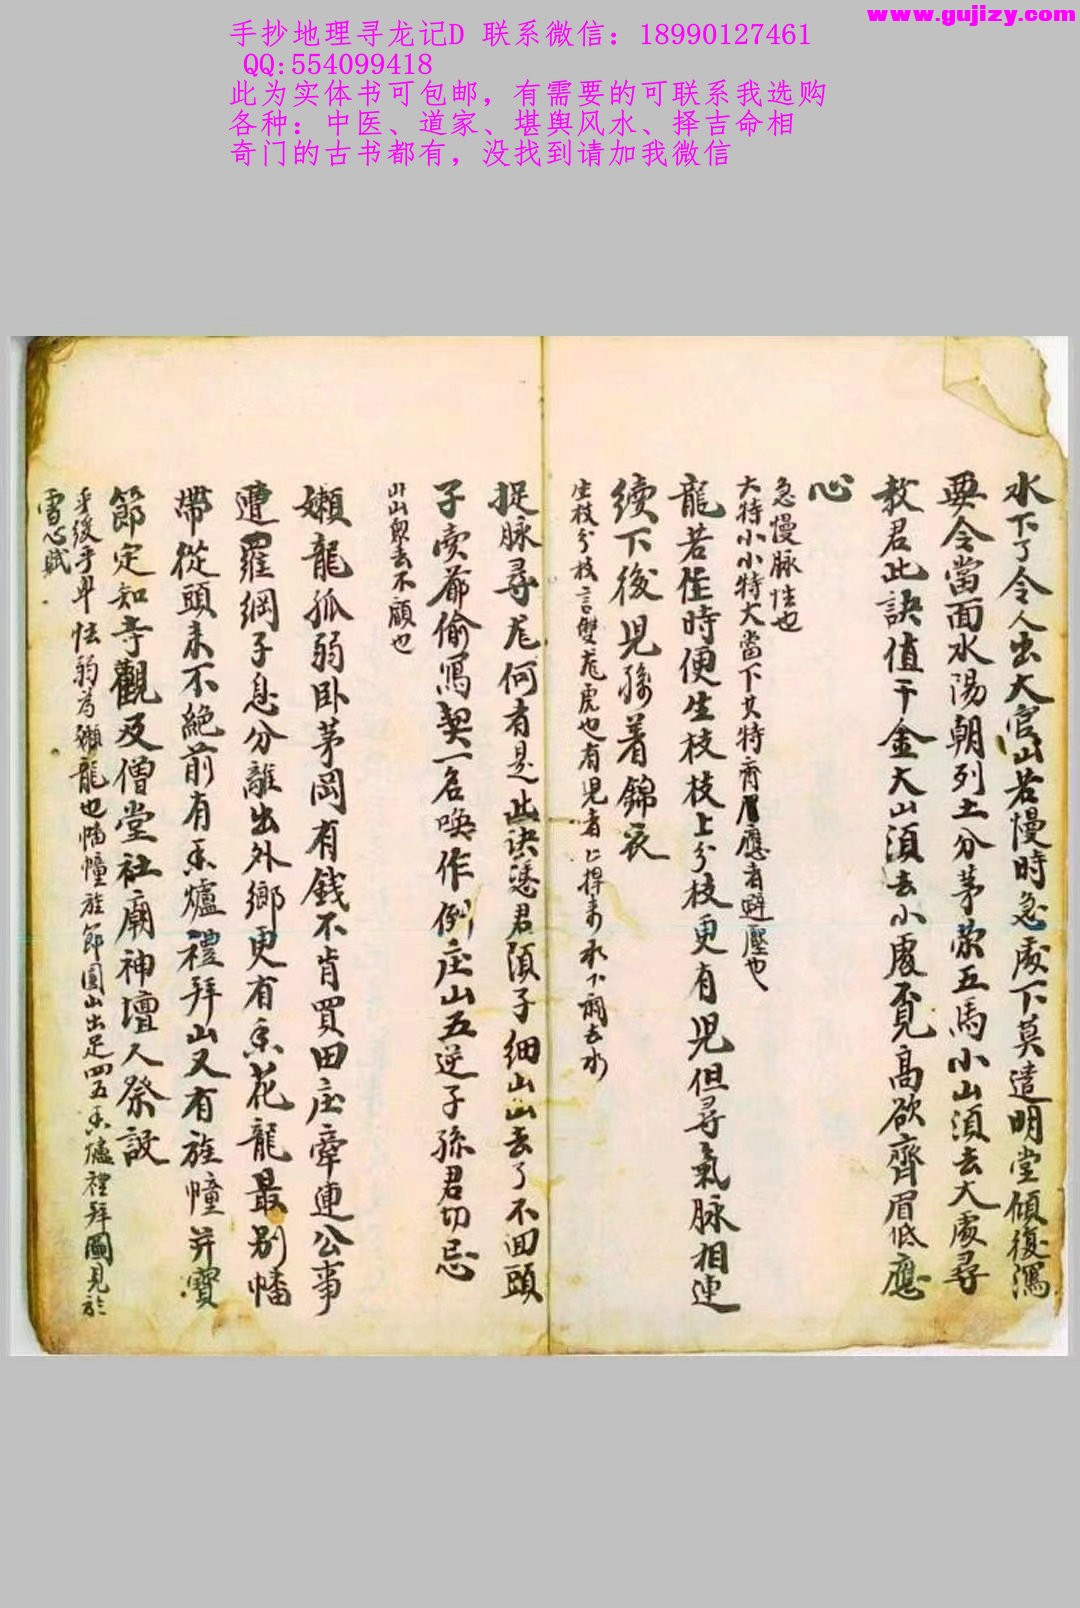 www.gujizy.com
手抄地理寻龙记D 联系微信：18990127461
QQ:554099418
此为实体书可包邮，有需要的可联系我选购
各种：中医、道家、堪舆风水、择吉命相
奇门的古书都有，没找到请加我微信
水下了令人出大官山若慢時急處下莫遣明堂傾復瀉
要令當面水陽朝列土分茅家五馬小山須去大處尋
教君此訣值千金大山須去小處覓高欲齊眉低應
心
急慢脉性也
大特小小特大當下其特齊眉應者避壓也
龍若住時便生枝枝上分枝更有児但尋氣脉相連
續下後児孫着錦衣
生枝分枝言雙龙虎也有児者
捉脉尋龙何有是此诀憑君須子細山山去了不回頭
子賣爺偷寫契一名喚作倒庄山五逆子孫君切忌
山去不顧也
嬾龍孤弱卧茅岡有錢不肯買田庄牽連公事
遭羅綱子息分離出外鄉更有香花龍最别幡
帶從頭来不絶前有香爐禮拜山又有旌幢并寶
節定知寺觀及僧堂社廟神壇人祭設
怯弱為獺龍也幡幢旌節圓山出足四五香爐禮拜圖見於
雪心賦